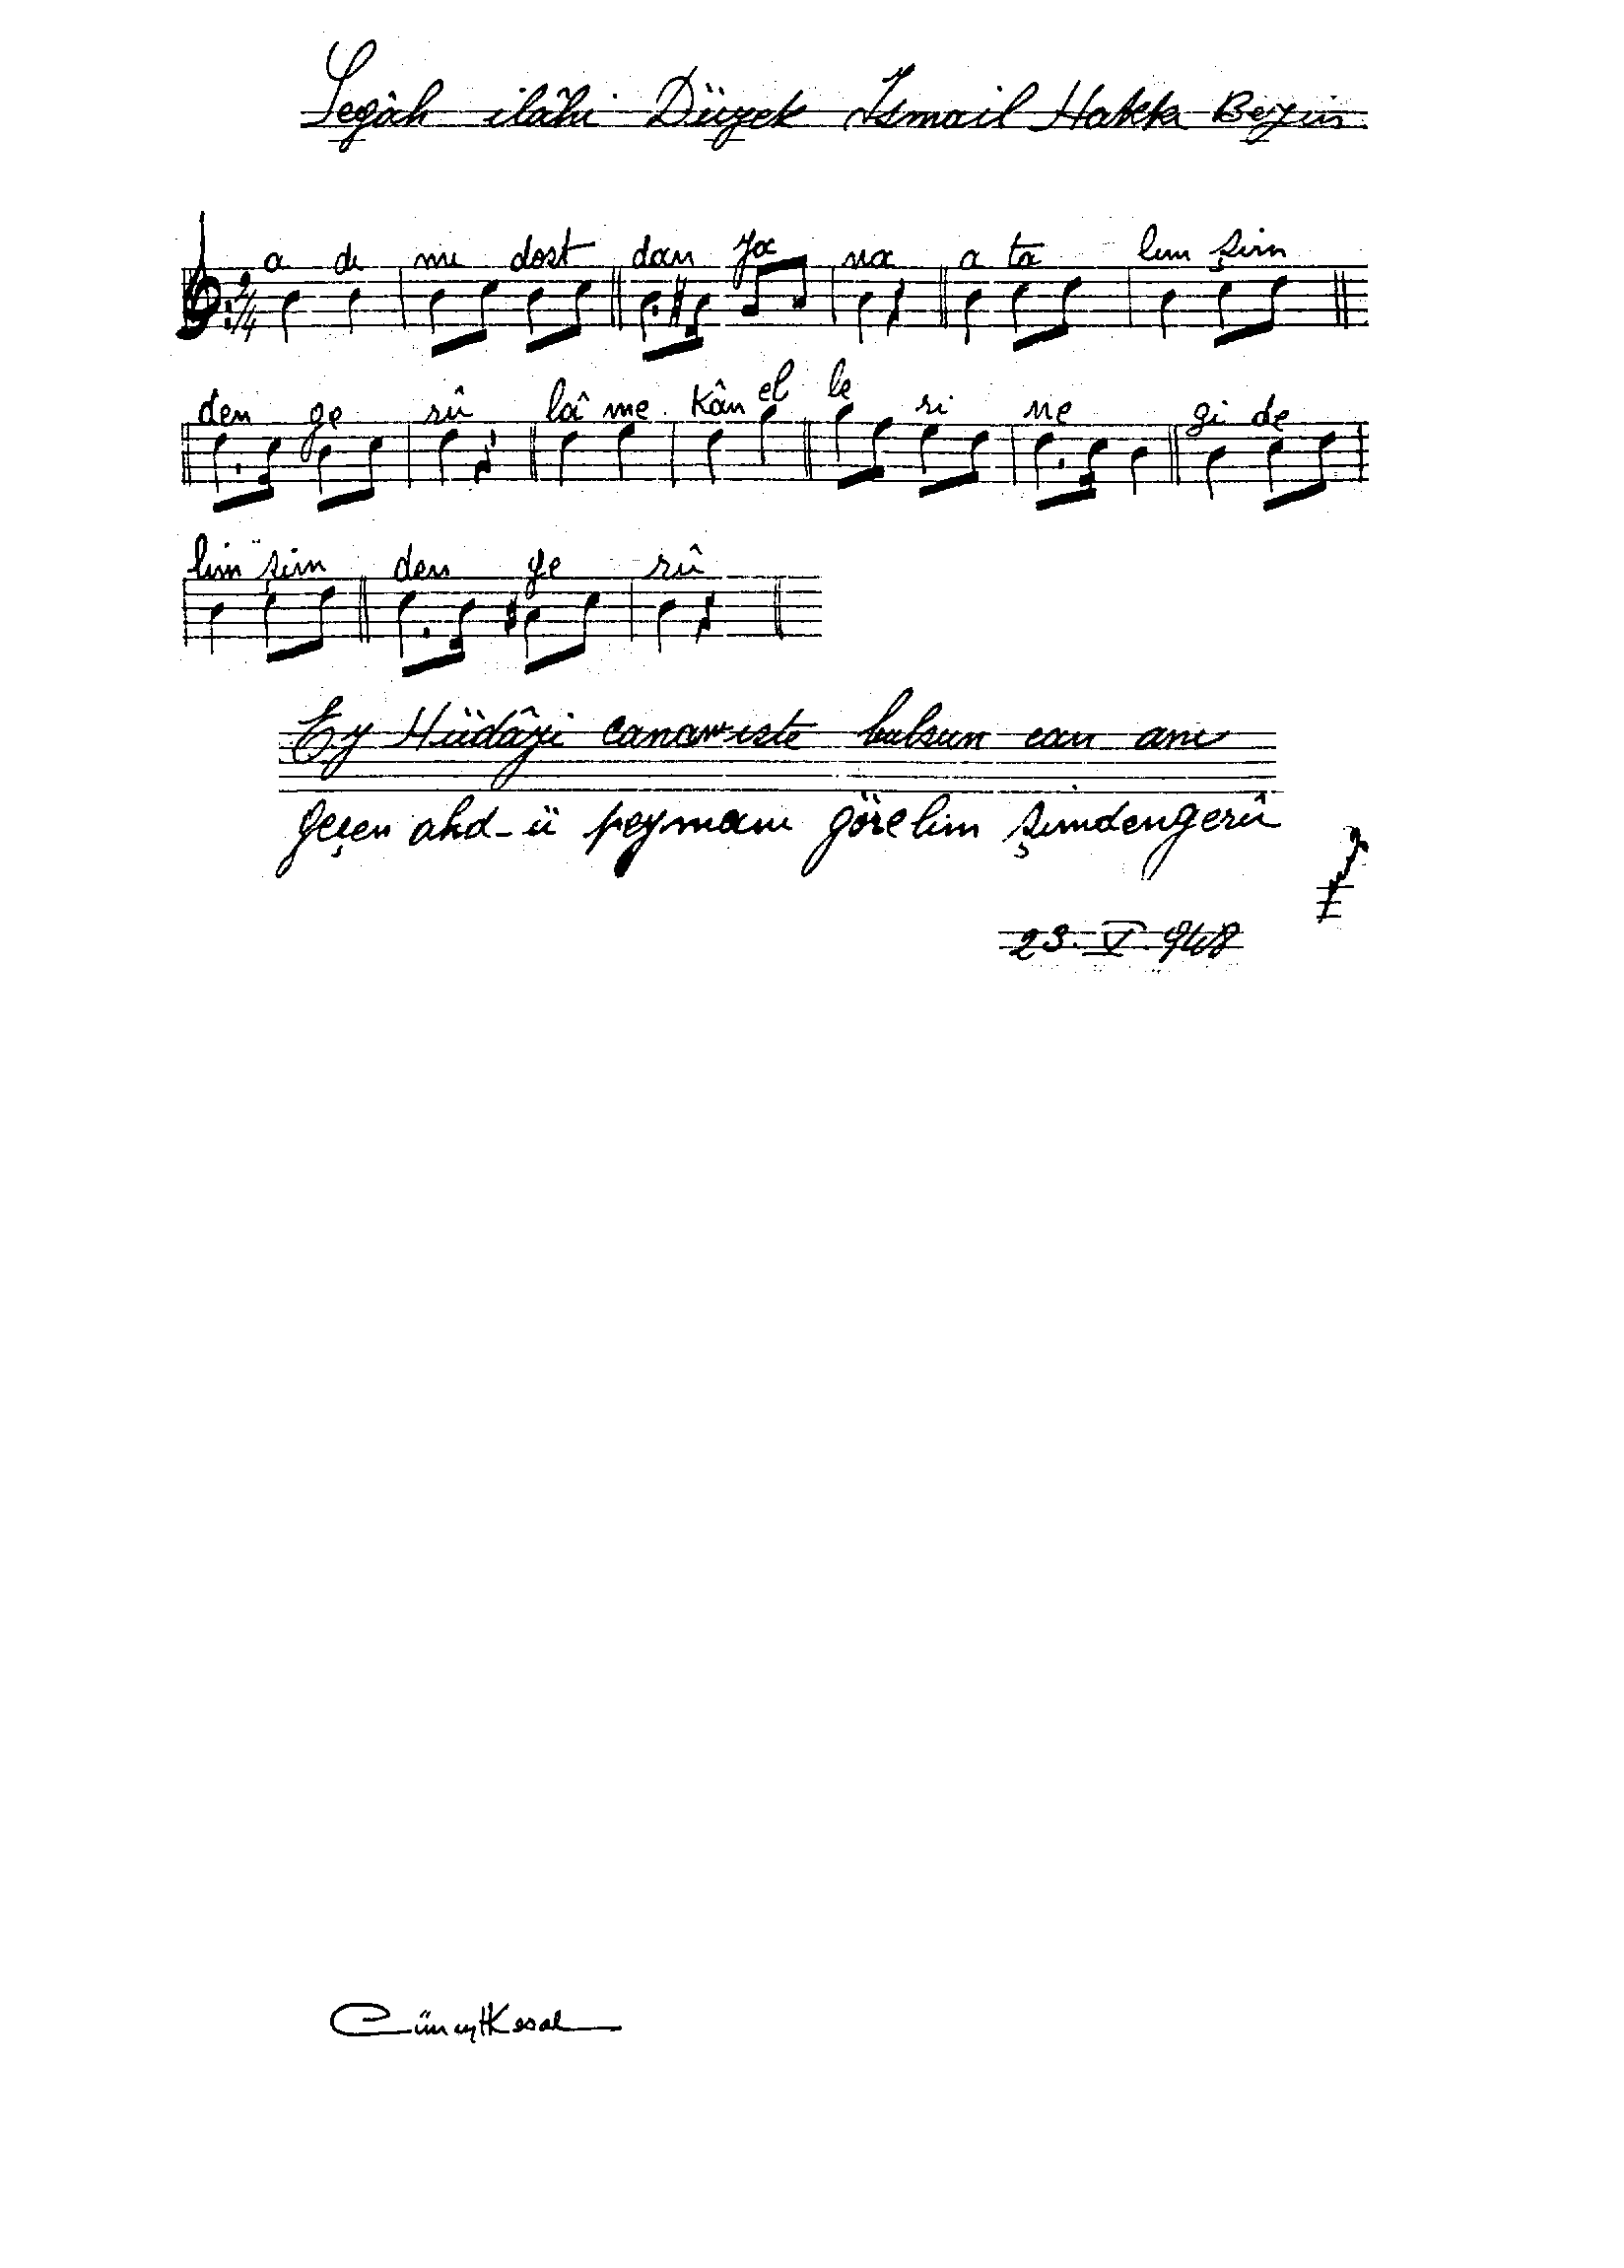 Segâh ilâhi Düyek İsmail Hakkı Beyin
a dı mı dost dan ya na a ta lım şim
den ge rû lâ me kân el le ri ne gi de
lim şim den ge rû
Ey Hüdâyi cananı iste bulsun can anı
geçen ahd-ü peymanı görelim şimdengerû
23. V. 948
Cüneyt Kosal